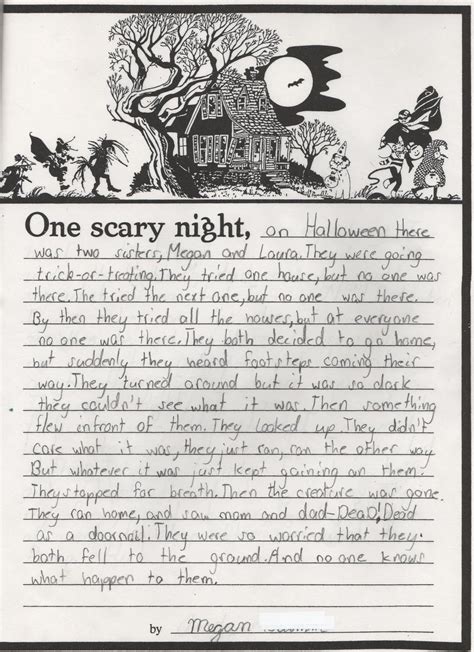 One scary night, on Halloween there
was two sisters, Megan and Laura. They were going
trick-or-treating. They tried one house, but no one was
there. The tried the next one, but no one was there.
By then they tried all the houses, but at everyone
no one was there. They both decided to go home,
but suddenly they heard footsteps coming their
way. They turned around but it was so dark
they couldn't see what it was. Then something
flew infront of them. They looked up. They didn't
care what it was, they just ran, ran the other way
But whatever it was just kept gaining on them.
They stopped for breath. Then the creature was gone.
They ran home, and saw mom and dad-DEAD! Dead
as a doornail! They were so worried that they
both fell to the ground. And no one knows
what happen to them.
by Megan